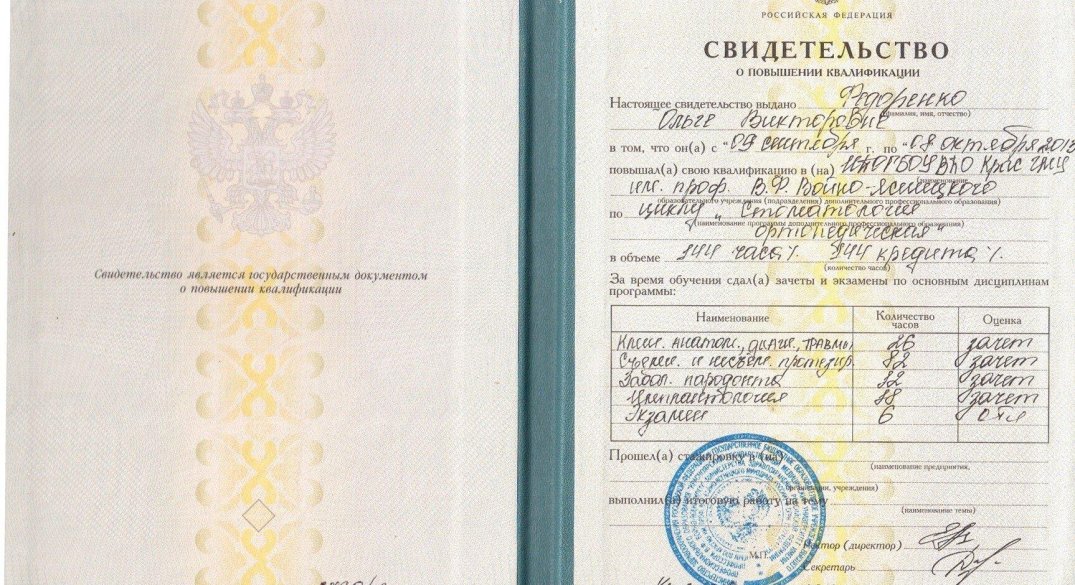 Свидетельство является государственным документом
о повышении квалификации
РОССИЙСКАЯ ФЕДЕРАЦИЯ
СВИДЕТЕЛЬСТВО
О ПОВЫШЕНИИ КВАЛИФИКАЦИИ
Настоящее свидетельство выдано Федоренко
(фамилия, имя, отчество)
Ольге Викторовне
в том, что он(а) с "09 сентября г. по "08 октября 2013
повышал(а) свою квалификацию в (на) ИПО ГБОУ ВПО КрасГМУ
(наименование
им. проф. В.Ф. Войно-Ясенецкого
образовательного учреждения (подразделения) дополнительного профессионального образования)
по циклу „Стоматология
(наименование программы дополнительного профессионального образования)
ортопедическая"
в объеме 144 часа/. 144 кредита/.
(количество часов)
За время обучения сдал(а) зачеты и экзамены по основным дисциплинам
программы:
Наименование Количество часов Оценка
Клин. анатом., диагн., травмы 26 зачет
Съемн. и несъемн. протезир. 82 зачет
Забол. пародонта 12 зачет
Имплантология 18 зачет
Экзамен 6 отл
Прошел(а) стажировку в (на)
(наименование предприятия,
организации, учреждения)
выполнил(а) итоговую работу на тему
(наименование темы)
М.П.
Ректор (директор)
Секретарь